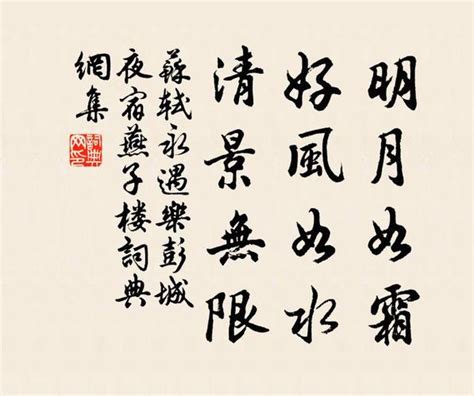 明月如霜
好風如水
清景無限
蘇軾永遇樂彭城
夜宿燕子楼詞典
網集